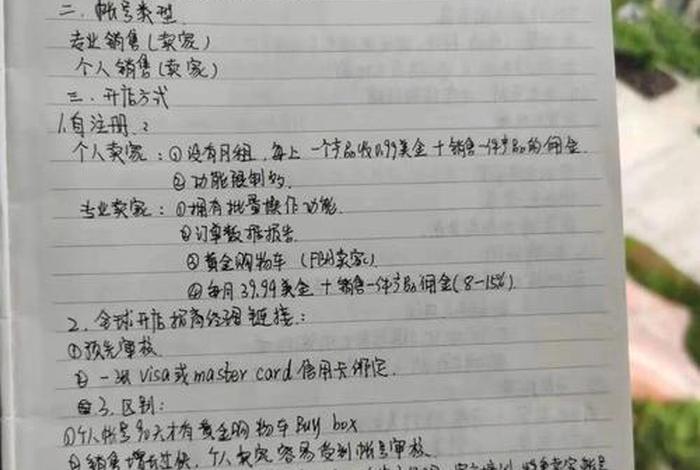 二. 帐号类型
专业销售(卖家)
个人销售(卖家)
三. 开店方式
1.自注册:
个人卖家: ①没有月租, 每上一个产品收0.99美金+销售一件产品的佣金.
②功能限制的.
专业卖家: ①拥有批量操作功能.
②订单数据报告.
③黄金购物车 (FBA卖家)
④每月39.99美金+销售一件产品佣金(8-15%).
2. 全球开店招商经理链接:
①预先审核
② 一张visa或master card信用卡绑定.
3. 区别:
①个人帐号90天才有黄金购物车Buy box
②销售增长过快, 个人卖家容易受到帐号审核.